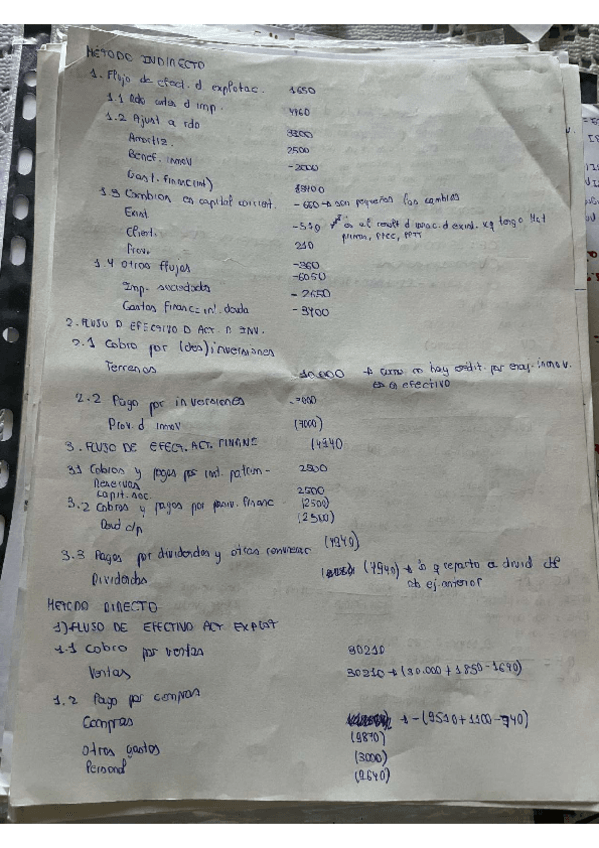 METODO INDIRECTO
1. Flujo de efect. d explotac. 1650
1.1 Rdo antes d imp. 4960
1.2 Ajust a rdo 3300
Amortiz. 2500
Benef. inmov -2000
Gast. financ(int)
1.3 Cambios en capital corrient. -660 → son pequeños los cambios
Exist -510
Client.
Prov. 210
1.4 Otros flujos -360
-6050
Imp. sociedades - 2650
Gastos financ = int. deuda - 3400
2. FLUJO D EFECTIVO D ACT. D INV.
2.1 Cobro por (des)inversiones
Terrenos 10.000 → como no hay crédit. por enaj. inmov. es a efectivo
2.2 Pago por inversiones -7000
Prov. d inmov (7000)
3. FLUJO DE EFECT. ACT. FINANC (4940
3.1 Cobros y pagos por inst. patrim- 2500
Reservas
Capit. soc. 2500
3.2 Cobros y pagos por pasiv. financ (2500)
Deud c/p (2500)
3.3 Pagos por dividendos y otras remunerac (4940)
Dividendos (4940) → lo q reparto a divid de ej. anterior
METODO DIRECTO
1) FLUJO DE EFECTIVO ACT EXPLOT
1.1 Cobro por ventas 30210
Ventas 30210 → (30.000 + 1850 - 1640)
1.2 Pago por compras
Compras → - (9510 + 1100 - 740)
(9870)
Otros gastos (3000)
Personal (2640)